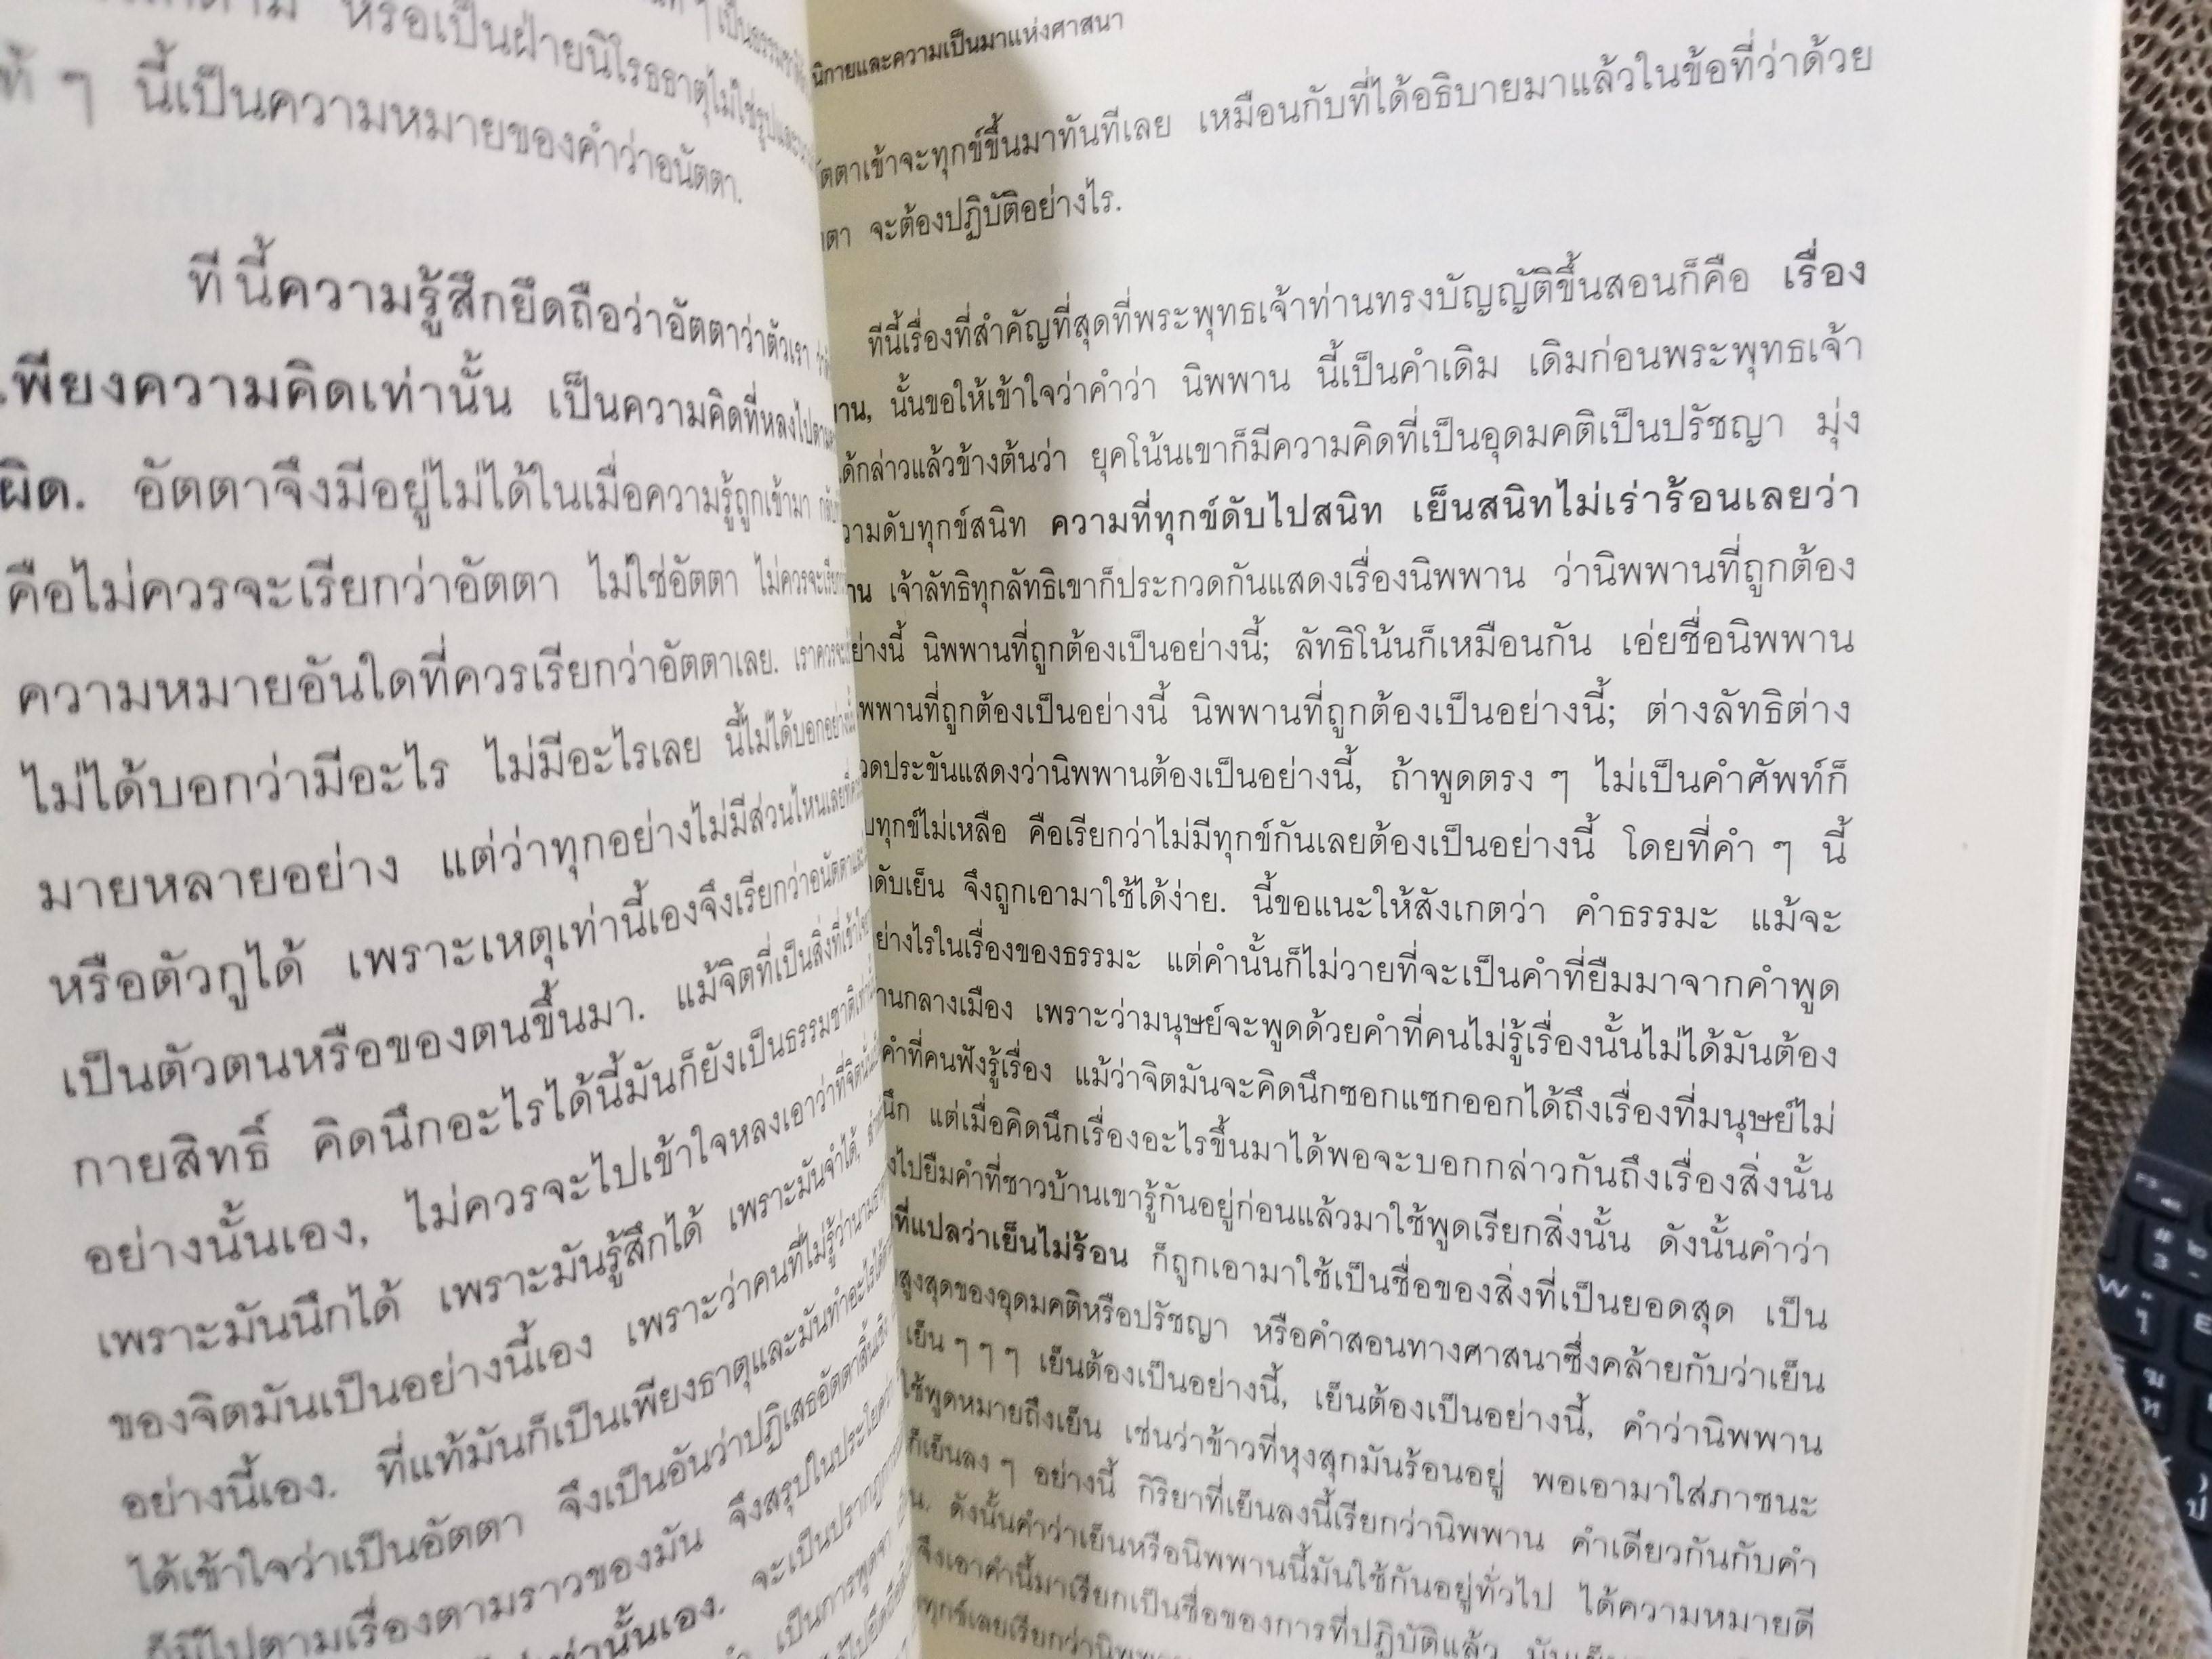 หรือเป็นฝ่ายนิโรธธาตุไม่ใช่รูปและ
ๆ นี้เป็นความหมายของคำว่าอนัตตา.
ทีนี้ความรู้สึกยึดถือว่าอัตตาว่าตัวเรา
เพียงความคิดเท่านั้น เป็นความคิดที่หลงไป
ผิด. อัตตาจึงมีอยู่ไม่ได้ในเมื่อความรู้ถูกเข้ามา
คือไม่ควรจะเรียกว่าอัตตา ไม่ใช่อัตตา ไม่ควรจะ
ความหมายอันใดที่ควรเรียกว่าอัตตาเลย. เราควรจะ
ไม่ได้บอกว่ามีอะไร ไม่มีอะไรเลย นี้ไม่ได้บอกอย่างนั้น
มายหลายอย่าง แต่ว่าทุกอย่างไม่มีส่วนไหนเลยที่
หรือตัวกูได้ เพราะเหตุเท่านี้เองจึงเรียกว่าอนัตตา
เป็นตัวตนหรือของตนขึ้นมา. แม้จิตที่เป็นสิ่งที่เข้าใจ
กายสิทธิ์ คิดนึกอะไรได้นี้มันก็ยังเป็นธรรมชาติเท่านั้น
อย่างนั้นเอง, ไม่ควรจะไปเข้าใจหลงเอาว่าที่จิตนั้น
เพราะมันนึกได้ เพราะมันรู้สึกได้ เพราะมันจำได้,
ของจิตมันเป็นอย่างนี้เอง เพราะว่าคนที่ไม่รู้ว่านามธ
อย่างนี้เอง. ที่แท้มันก็เป็นเพียงธาตุและมันทำอะไรได้
ได้เข้าใจว่าเป็นอัตตา จึงเป็นอันว่าปฏิเสธอัตตาสิ้นเชิง
ก็มีไปตามเรื่องตามราวของมัน จึงสรุปในประโยคว่า
เท่านั้นเอง. จะเป็นปรากฏการ
เป็นการพูดจา
นิกายและความเป็นมาแห่งศาสนา
ัตตาเข้าจะทุกข์ขึ้นมาทันทีเลย เหมือนกับที่ได้อธิบายมาแล้วในข้อที่ว่าด้วย
ตา จะต้องปฏิบัติอย่างไร.
ทีนี้เรื่องที่สำคัญที่สุดที่พระพุทธเจ้าท่านทรงบัญญัติขึ้นสอนก็คือ เรื่อง
พาน, นั้นขอให้เข้าใจว่าคำว่า นิพพาน นี้เป็นคำเดิม เดิมก่อนพระพุทธเจ้า
ด้กล่าวแล้วข้างต้นว่า ยุคโน้นเขาก็มีความคิดที่เป็นอุดมคติเป็นปรัชญา มุ่ง
วามดับทุกข์สนิท ความที่ทุกข์ดับไปสนิท เย็นสนิทไม่เร่าร้อนเลยว่า
าน เจ้าลัทธิทุกลัทธิเขาก็ประกวดกันแสดงเรื่องนิพพาน ว่านิพพานที่ถูกต้อง
ย่างนี้ นิพพานที่ถูกต้องเป็นอย่างนี้; ลัทธิโน้นก็เหมือนกัน เอ่ยชื่อนิพพาน
พพานที่ถูกต้องเป็นอย่างนี้ นิพพานที่ถูกต้องเป็นอย่างนี้; ต่างลัทธิต่าง
วดประขันแสดงว่านิพพานต้องเป็นอย่างนี้, ถ้าพูดตรง ๆ ไม่เป็นคำศัพท์ก็
บทุกข์ไม่เหลือ คือเรียกว่าไม่มีทุกข์กันเลยต้องเป็นอย่างนี้ โดยที่คำ ๆ นี้
ดับเย็น จึงถูกเอามาใช้ได้ง่าย. นี้ขอแนะให้สังเกตว่า คำธรรมะ แม้จะ
ย่างไรในเรื่องของธรรมะ แต่คำนั้นก็ไม่วายที่จะเป็นคำที่ยืมมาจากคำพูด
านกลางเมือง เพราะว่ามนุษย์จะพูดด้วยคำที่คนไม่รู้เรื่องนั้นไม่ได้มันต้อง
คำที่คนฟังรู้เรื่อง แม้ว่าจิตมันจะคิดนึกซอกแซกออกได้ถึงเรื่องที่มนุษย์ไม่
นึก แต่เมื่อคิดนึกเรื่องอะไรขึ้นมาได้พอจะบอกกล่าวกันถึงเรื่องสิ่งนั้น
งไปยืมคำที่ชาวบ้านเขารู้กันอยู่ก่อนแล้วมาใช้พูดเรียกสิ่งนั้น ดังนั้นคำว่า
ที่แปลว่าเย็นไม่ร้อน ก็ถูกเอามาใช้เป็นชื่อของสิ่งที่เป็นยอดสุด เป็น
สูงสุดของอุดมคติหรือปรัชญา หรือคำสอนทางศาสนาซึ่งคล้ายกับว่าเย็น
เย็น ๆ ๆ ๆ เย็นต้องเป็นอย่างนี้, เย็นต้องเป็นอย่างนี้, คำว่านิพพาน
ใช้พูดหมายถึงเย็น เช่นว่าข้าวที่หุงสุกมันร้อนอยู่ พอเอามาใส่ภาชนะ
ก็เย็นลง ๆ อย่างนี้ กิริยาที่เย็นลงนี้เรียกว่านิพพาน คำเดียวกันกับคำ
น. ดังนั้นคำว่าเย็นหรือนิพพานนี้มันใช้กันอยู่ทั่วไป ได้ความหมายดี
จึงเอาคำนี้มาเรียกเป็นชื่อของการที่ปฏิบัติแล้ว มันเย็น
ทุกข์เลยเรียกว่านิพพาน